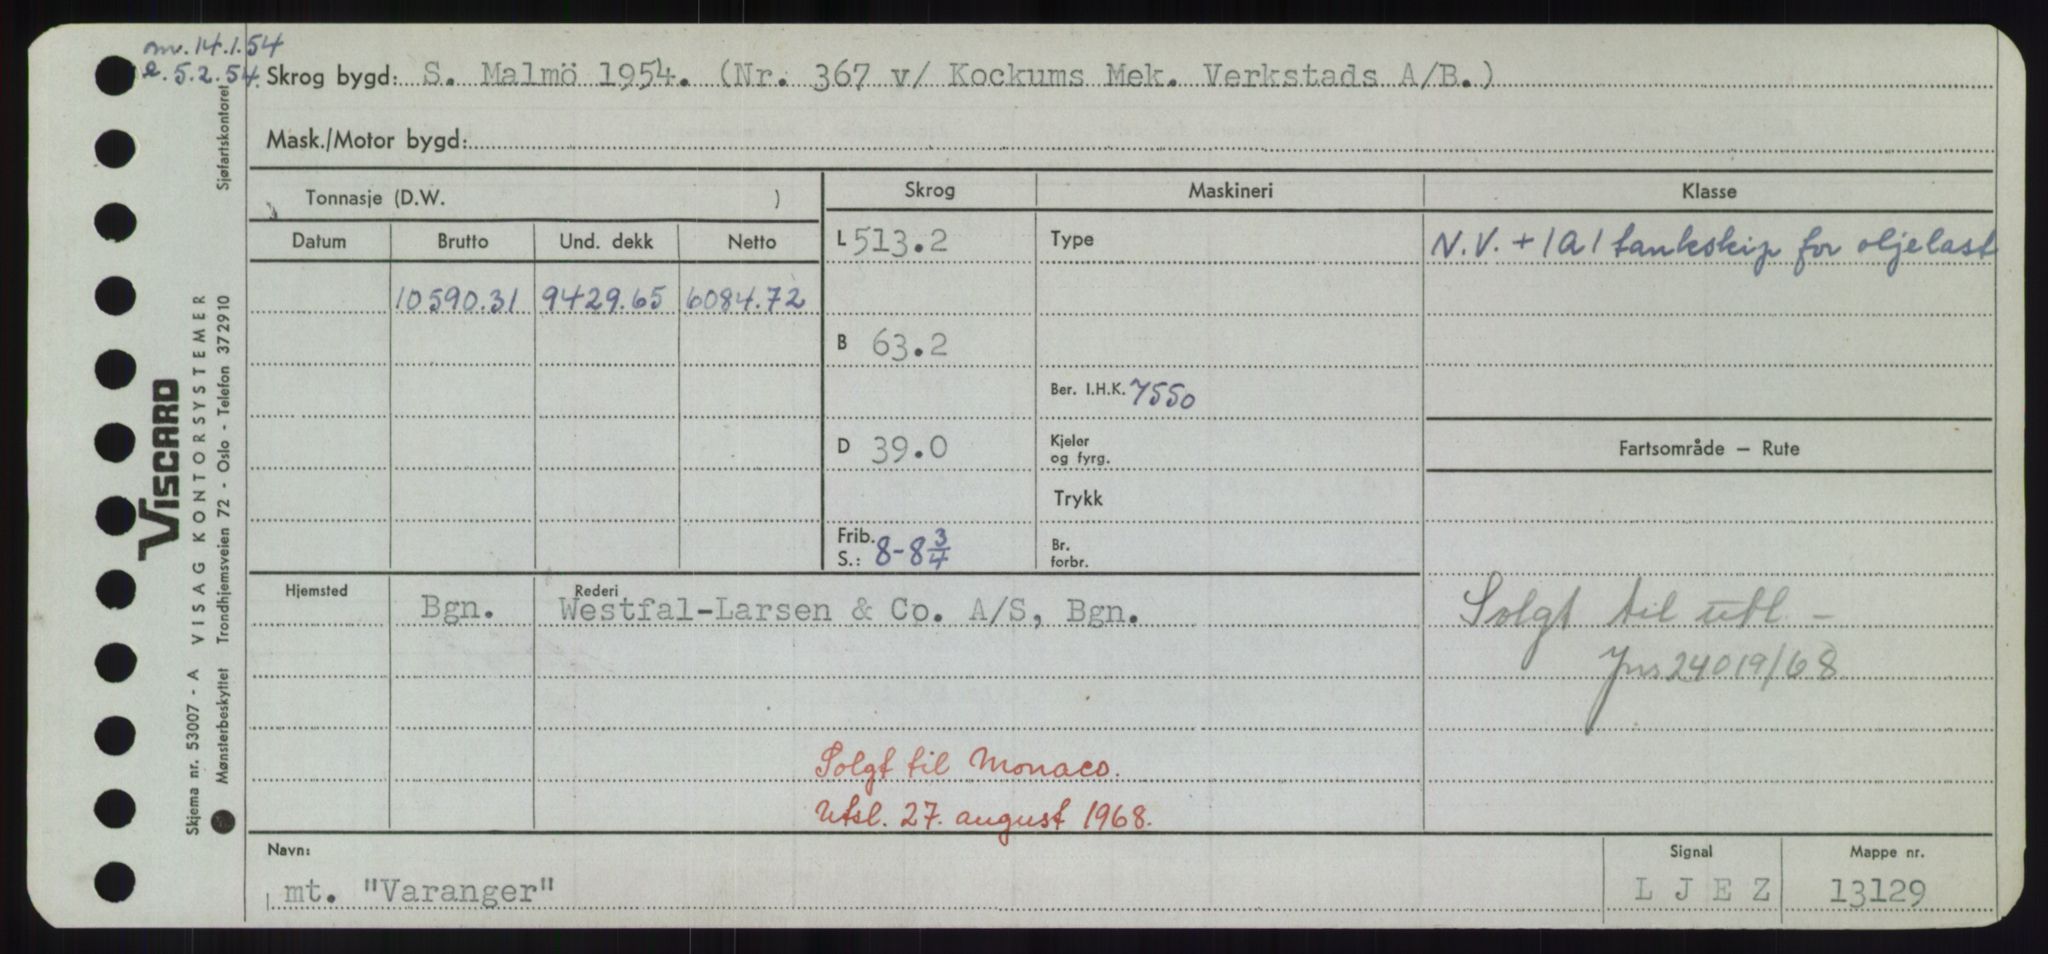 mv. 14.1.54
e. 5.2.54.
Skrog bygd: S. Malmö 1954. (Nr. 367 v/ Kockums Mek. Verkstads A/B.)
Mask./Motor bygd:
Tonnasje (D.W. )
Skrog
Maskineri
Klasse
Datum
Brutto
Und. dekk
Netto
L 513.2
Type
N.V. + 1A1 tankskip for oljelast
10590.31 9429.65 6084.72
B 63.2
Ber. I.H.K. 7550
D 39.0
Kjeler
og fyrg.
Fartsområde — Rute
Trykk
Frib.
S.: 8-8 3/4
Br.
forbr.
Hjemsted
Bgn.
Rederi
Westfal-Larsen & Co. A/S, Bgn.
Solgt til utl. -
Jnr 24019/68
Solgt til Monaco.
Utsl. 27. august 1968.
Navn:
mt. "Varanger"
Signal
L J E Z
Mappe nr.
13129
VISCARD
Skjema nr. 53007 - A VISAG KONTORSYSTEMER
Mønsterbeskyttet Trondhjemsveien 72 - Oslo - Telefon 37 29 10
Sjøfartskontoret